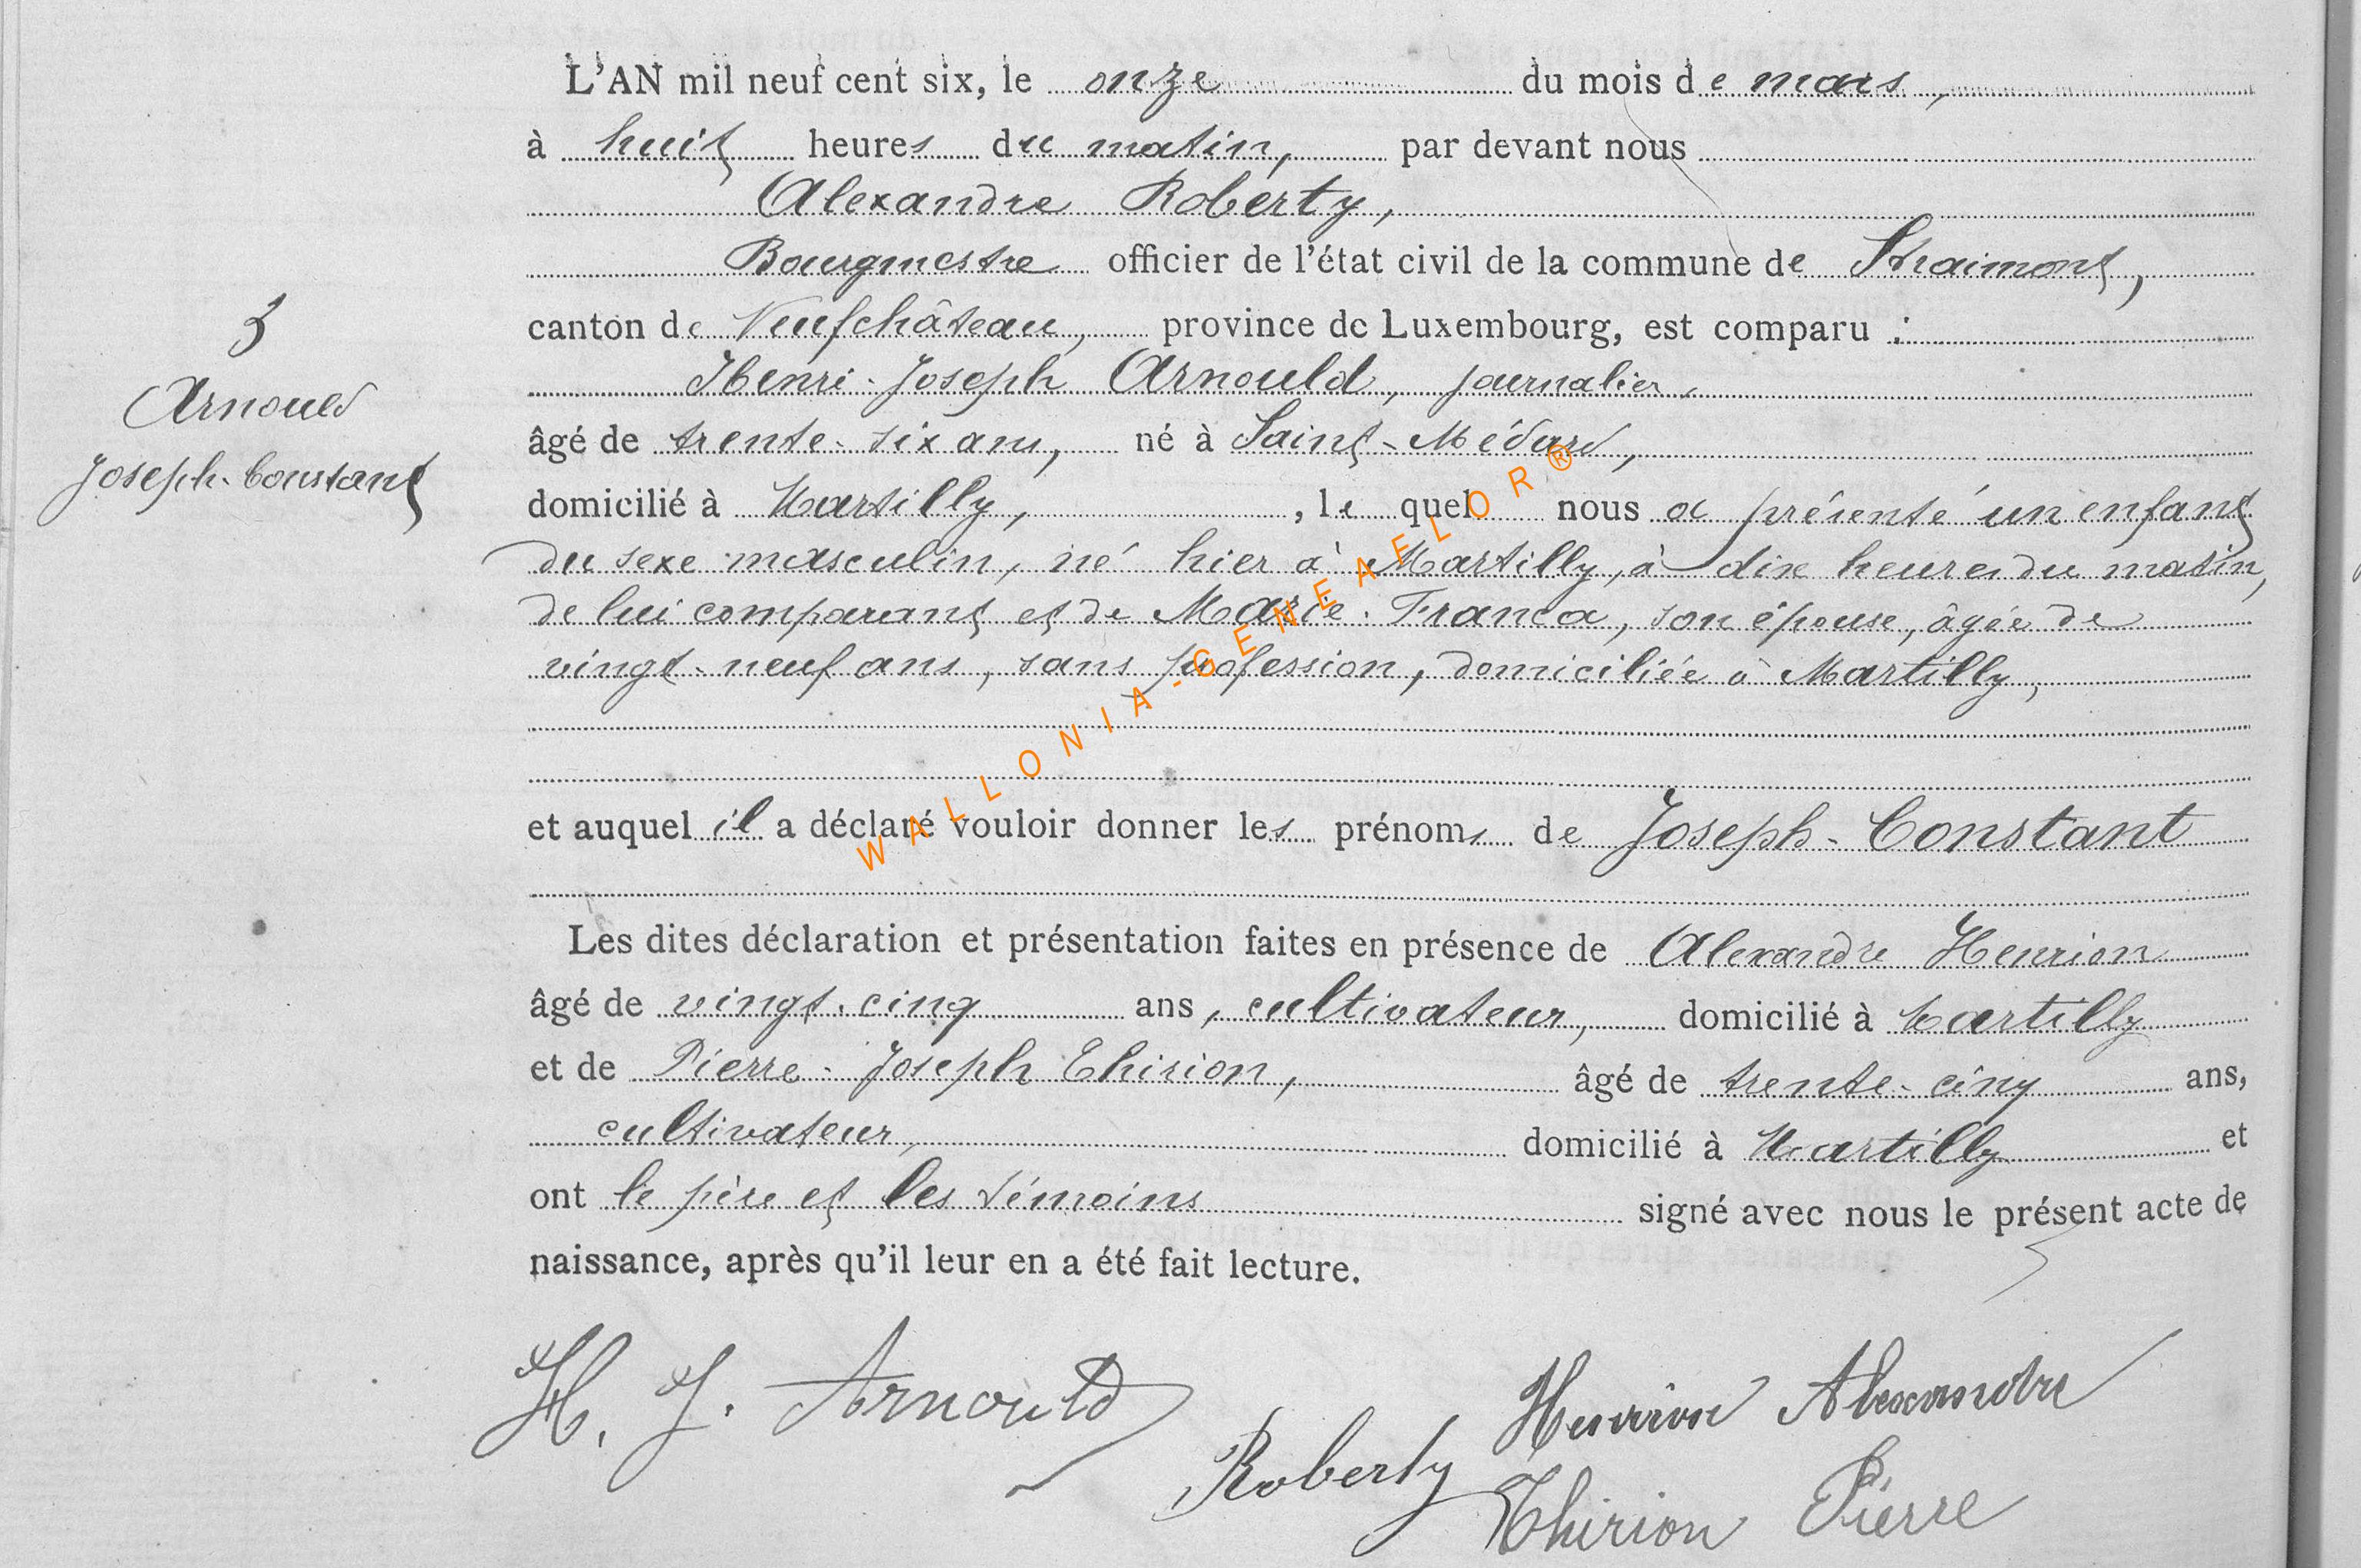 L'AN mil neuf cent six, le onze du mois de mars,
à huit heures du matin, par devant nous
Alexandre Roberty,
Bourgmestre officier de l'état civil de la commune de Straimont,
canton de Neufchâteau, province de Luxembourg, est comparu :
Henri-Joseph Arnould, journalier,
âgé de trente-six ans, né à Saint-Médard,
domicilié à Martilly, , lequel nous a présenté un enfant
du sexe masculin, né hier à Martilly, à dix heures du matin,
de lui comparant et de Marie Franca, son épouse, âgée de
vingt-neuf ans, sans profession, domiciliée à Martilly,
et auquel il a déclaré vouloir donner les prénoms de Joseph-Constant
Les dites déclaration et présentation faites en présence de Alexandre Henrion
âgé de vingt-cinq ans, cultivateur, domicilié à Martilly
et de Pierre-Joseph Thirion, âgé de trente-cinq ans,
cultivateur, domicilié à Martilly et
ont le père et les témoins signé avec nous le présent acte de
naissance, après qu'il leur en a été fait lecture.
H. J. Arnould
Henrion Alexandre
Roberty
Thirion Pierre
Arnould
Joseph-Constant
WALLONIA-GENEAELOR®